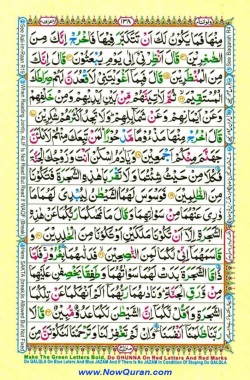 ۱۳۸
مِنْهَا فَمَا يَكُوْنُ لَكَ اَنْ تَتَكَبَّرَ فِيْهَا فَاخْرُجْ اِنَّكَ مِنَ
الصّٰغِرِيْنَ قَالَ اَنْظِرْنِيْٓ اِلٰى يَوْمِ يُبْعَثُوْنَ قَالَ اِنَّكَ
مِنَ الْمُنْظَرِيْنَ قَالَ فَبِمَآ اَغْوَيْتَنِيْ لَاَقْعُدَنَّ لَهُمْ صِرَاطَكَ
الْمُسْتَقِيْمَ ثُمَّ لَاٰتِيَنَّهُمْ مِّنْۢ بَيْنِ اَيْدِيْهِمْ وَمِنْ خَلْفِهِمْ
وَعَنْ اَيْمَانِهِمْ وَعَنْ شَمَآئِلِهِمْ وَلَا تَجِدُ اَكْثَرَهُمْ شٰكِرِيْنَ
قَالَ اخْرُجْ مِنْهَا مَذْءُوْمًا مَّدْحُوْرًا لَمَنْ تَبِعَكَ مِنْهُمْ لَاَمْلَئَنَّ
جَهَنَّمَ مِنْكُمْ اَجْمَعِيْنَ وَيٰٓاٰدَمُ اسْكُنْ اَنْتَ وَزَوْجُكَ الْجَنَّةَ
فَكُلَا مِنْ حَيْثُ شِئْتُمَا وَلَا تَقْرَبَا هٰذِهِ الشَّجَرَةَ فَتَكُوْنَا
مِنَ الظّٰلِمِيْنَ فَوَسْوَسَ لَهُمَا الشَّيْطٰنُ لِيُبْدِيَ لَهُمَا مَا
وٗرِيَ عَنْهُمَا مِنْ سَوْاٰتِهِمَا وَقَالَ مَا نَهٰكُمَا رَبُّكُمَا عَنْ هٰذِهِ
الشَّجَرَةِ اِلَّآ اَنْ تَكُوْنَا مَلَكَيْنِ اَوْ تَكُوْنَا مِنَ الْخٰلِدِيْنَ
وَقَاسَمَهُمَآ اِنِّيْ لَكُمَا لَمِنَ النّٰصِحِيْنَ فَدَلّٰهُمَا بِغُرُوْرٍ فَلَمَّا
ذَاقَا الشَّجَرَةَ بَدَتْ لَهُمَا سَوْاٰتُهُمَا وَطَفِقَا يَخْصِفٰنِ عَلَيْهِمَا
مِنْ وَّرَقِ الْجَنَّةِ وَنَادٰىهُمَا رَبُّهُمَآ اَلَمْ اَنْهَكُمَا عَنْ تِلْكُمَا
الشَّجَرَةِ وَاَقُلْ لَّكُمَآ اِنَّ الشَّيْطٰنَ لَكُمَا عَدُوٌّ مُّبِيْنٌ قَالَا
رَبَّنَا ظَلَمْنَآ اَنْفُسَنَا وَاِنْ لَّمْ تَغْفِرْ لَنَا وَتَرْحَمْنَا لَنَكُوْنَنَّ مِنَ
Make The Green Letters Bold, Do GHUNNA On Red Letters And Red Marks
Do QALQLA On Blue Letters And Blue JAZAM And If There Is No JAZAM In Condition Of Stoping Do QALQLA
www.NowQuran.com